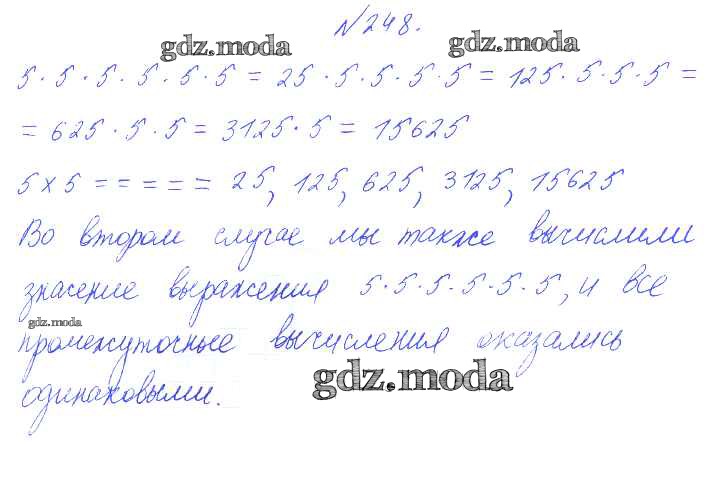 №248.
gdz.moda gdz.moda
5·5·5·5·5·5 = 25·5·5·5·5 = 125·5·5·5 =
= 625·5·5 = 3125·5 = 15625
5×5 = = = = = 25, 125, 625, 3125, 15625
Во втором случае мы также вычислили
значение выражения 5·5·5·5·5·5, и все
gdz.moda
промежуточные вычисления оказались
одинаковыми.
gdz.moda